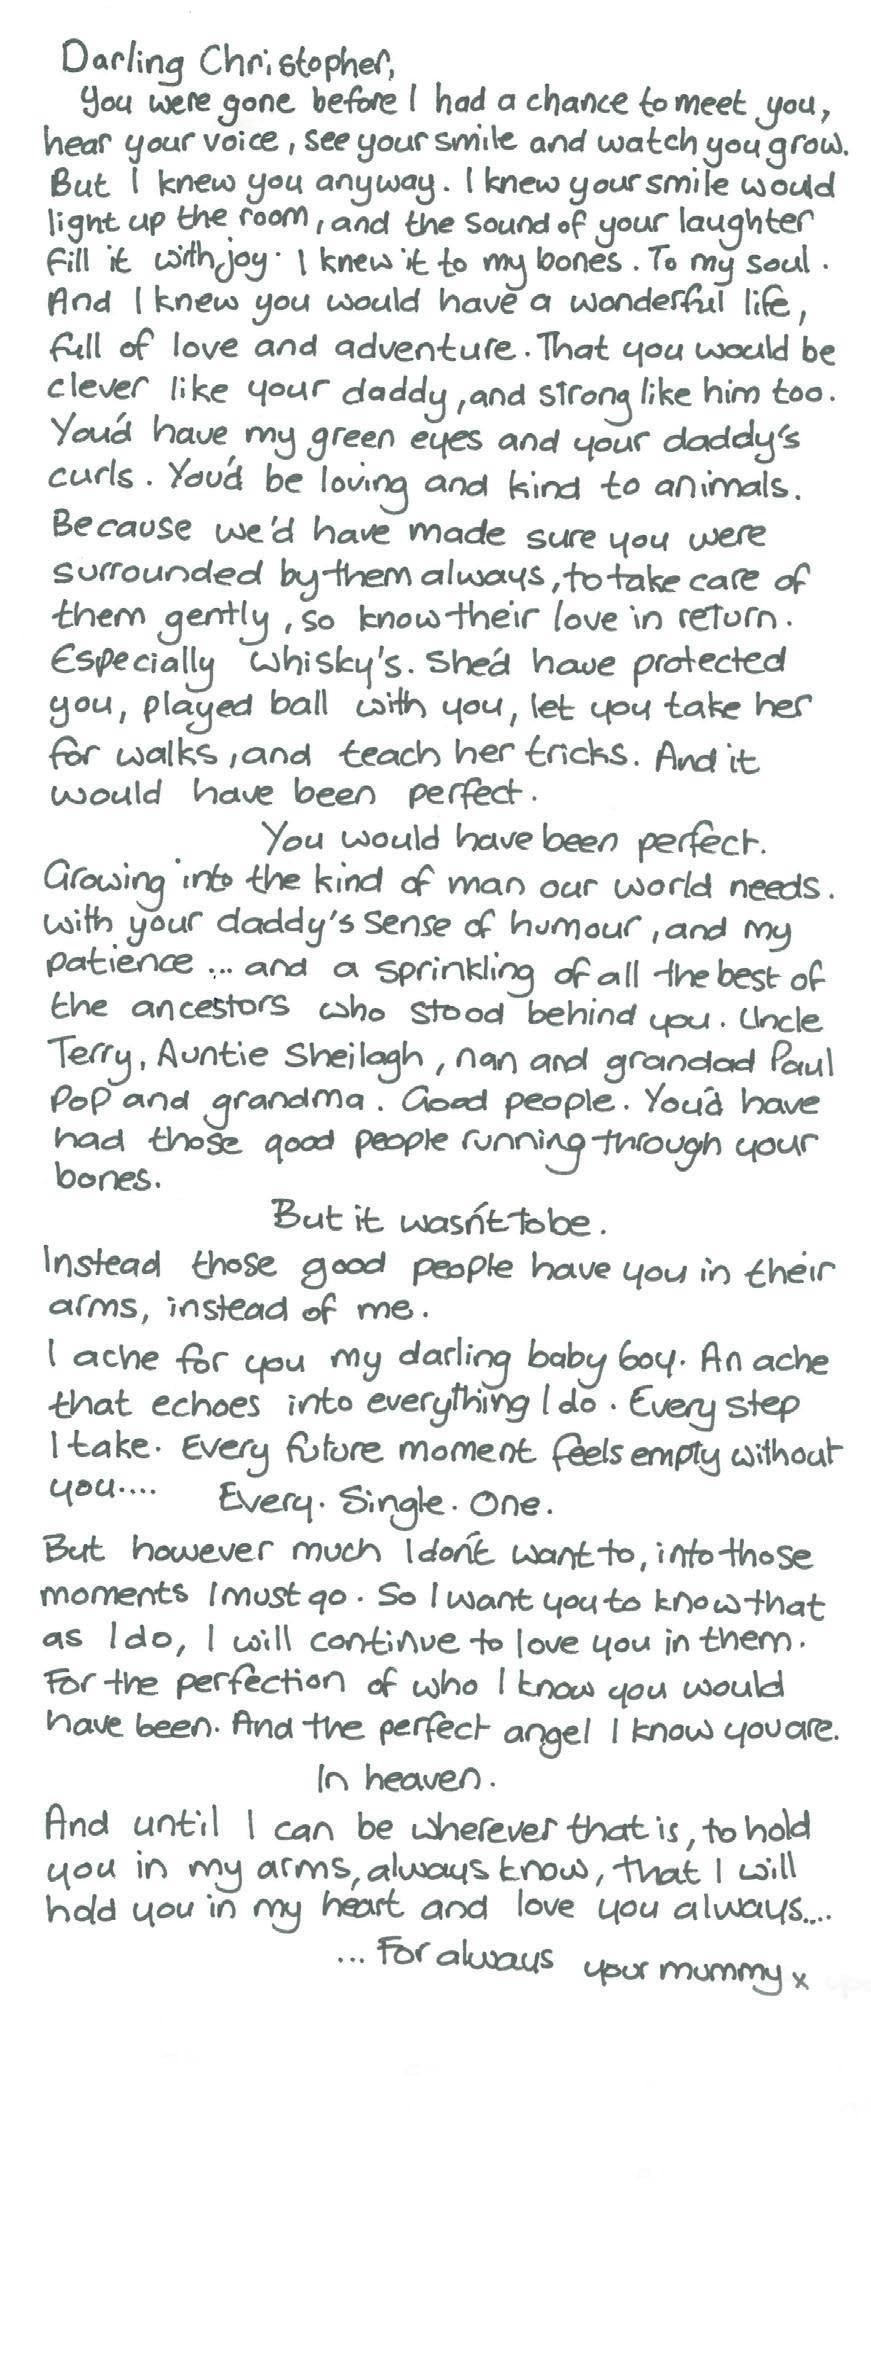 Darling Christopher,
You were gone before I had a chance to meet you,
hear your voice, see your smile and watch you grow.
But I knew you anyway. I knew your smile would
light up the room, and the sound of your laughter
fill it with joy. I knew it to my bones. To my soul.
And I knew you would have a wonderful life,
full of love and adventure. That you would be
clever like your daddy, and strong like him too.
You'd have my green eyes and your daddy's
curls. You'd be loving and kind to animals.
Because we'd have made sure you were
surrounded by them always, to take care of
them gently, so know their love in return.
Especially Whisky's. She'd have protected
you, played ball with you, let you take her
for walks, and teach her tricks. And it
would have been perfect.
You would have been perfect.
Growing into the kind of man our world needs.
With your daddy's sense of humour, and my
patience ... and a sprinkling of all the best of
the ancestors who stood behind you. Uncle
Terry, Auntie Sheilagh, nan and grandad Paul
Pop and grandma. Good people. You'd have
had those good people running through your
bones.
But it wasn't to be.
Instead those good people have you in their
arms, instead of me.
I ache for you my darling baby boy. An ache
that echoes into everything I do. Every step
I take. Every future moment feels empty without
you.... Every. Single. One.
But however much I don't want to, into those
moments I must go. So I want you to know that
as I do, I will continue to love you in them.
For the perfection of who I know you would
have been. And the perfect angel I know you are.
In heaven.
And until I can be wherever that is, to hold
you in my arms, always know, that I will
hold you in my heart and love you always....
... For always your mummy x